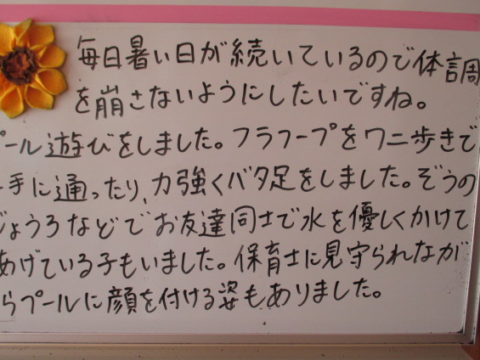 毎日暑い日が続いているので体調
を崩さないようにしたいですね。
プール遊びをしました。フラフープをワニ歩きで
上手に通ったり、力強くバタ足をしました。ぞうの
じょうろなどでお友達同士で水を優しくかけて
あげている子もいました。保育士に見守られなが
らプールに顔を付ける姿もありました。